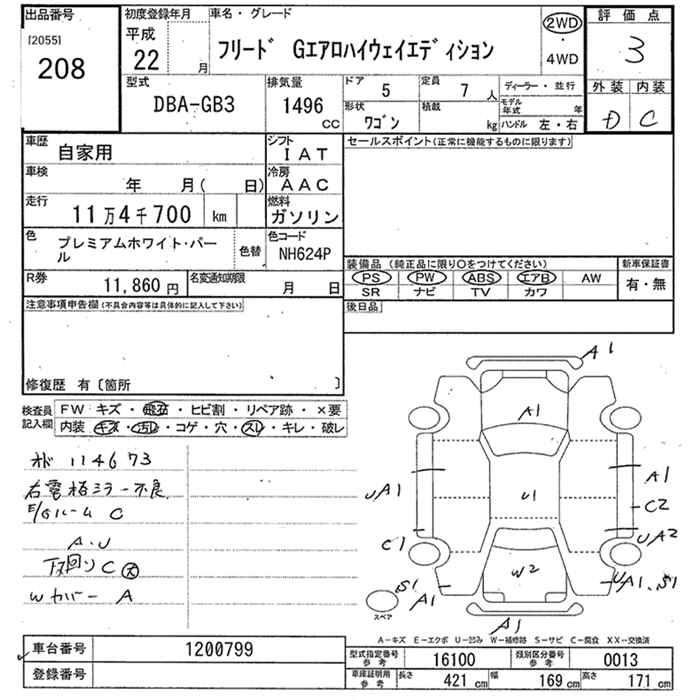 出品番号
[2055]
208
初度登録年月
平成
22 月
車名・グレード
フリード Gエアロハイウェイエディション
2WD
・
4WD
評価点
3
外装 内装
D C
型式
DBA-GB3
排気量
1496
CC
ドア 5
定員 7 人
形状
ワゴン
積載 kg
ディーラー・並行
モデル年式 年
ハンドル 左・右
車歴
自家用
シフト
IAT
車検
年 月( 日)
冷房
AAC
走行
11万4千700 km
燃料
ガソリン
色
プレミアムホワイト・パール
色替
色コード
NH624P
R券
11,860 円
名変通知期限
月 日
セールスポイント(正常に機能するものに限ります)
装備品 (純正品に限り〇をつけてください)
PS PW ABS エアB AW
SR ナビ TV カワ
新車保証書
有・無
後日品
注意事項申告欄(不具合内容等は具体的に記入して下さい)
修復歴 有〔箇所 〕
検査員
記入欄
FW キズ・飛石・ヒビ割・リペア跡・×要
内装 キズ・汚レ・コゲ・穴・スレ・キレ・破レ
114673
右電格ミラー不良
E/Gルーム C
A・U
下回りC
Wカバー A
A1
A1
UA1
A1
U1
C2
C1
UA2
W2
S1
A1
UA1、S1
A1
スペア
A―キズ E―エクボ U―凹み W―補修跡 S―サビ C―腐食 XX―交換済
車台番号
1200799
登録番号
型式指定番号
参考
16100
類別区分番号
参考
0013
車庫証明用
参考
長さ 421 cm
幅 169 cm
高さ 171 cm